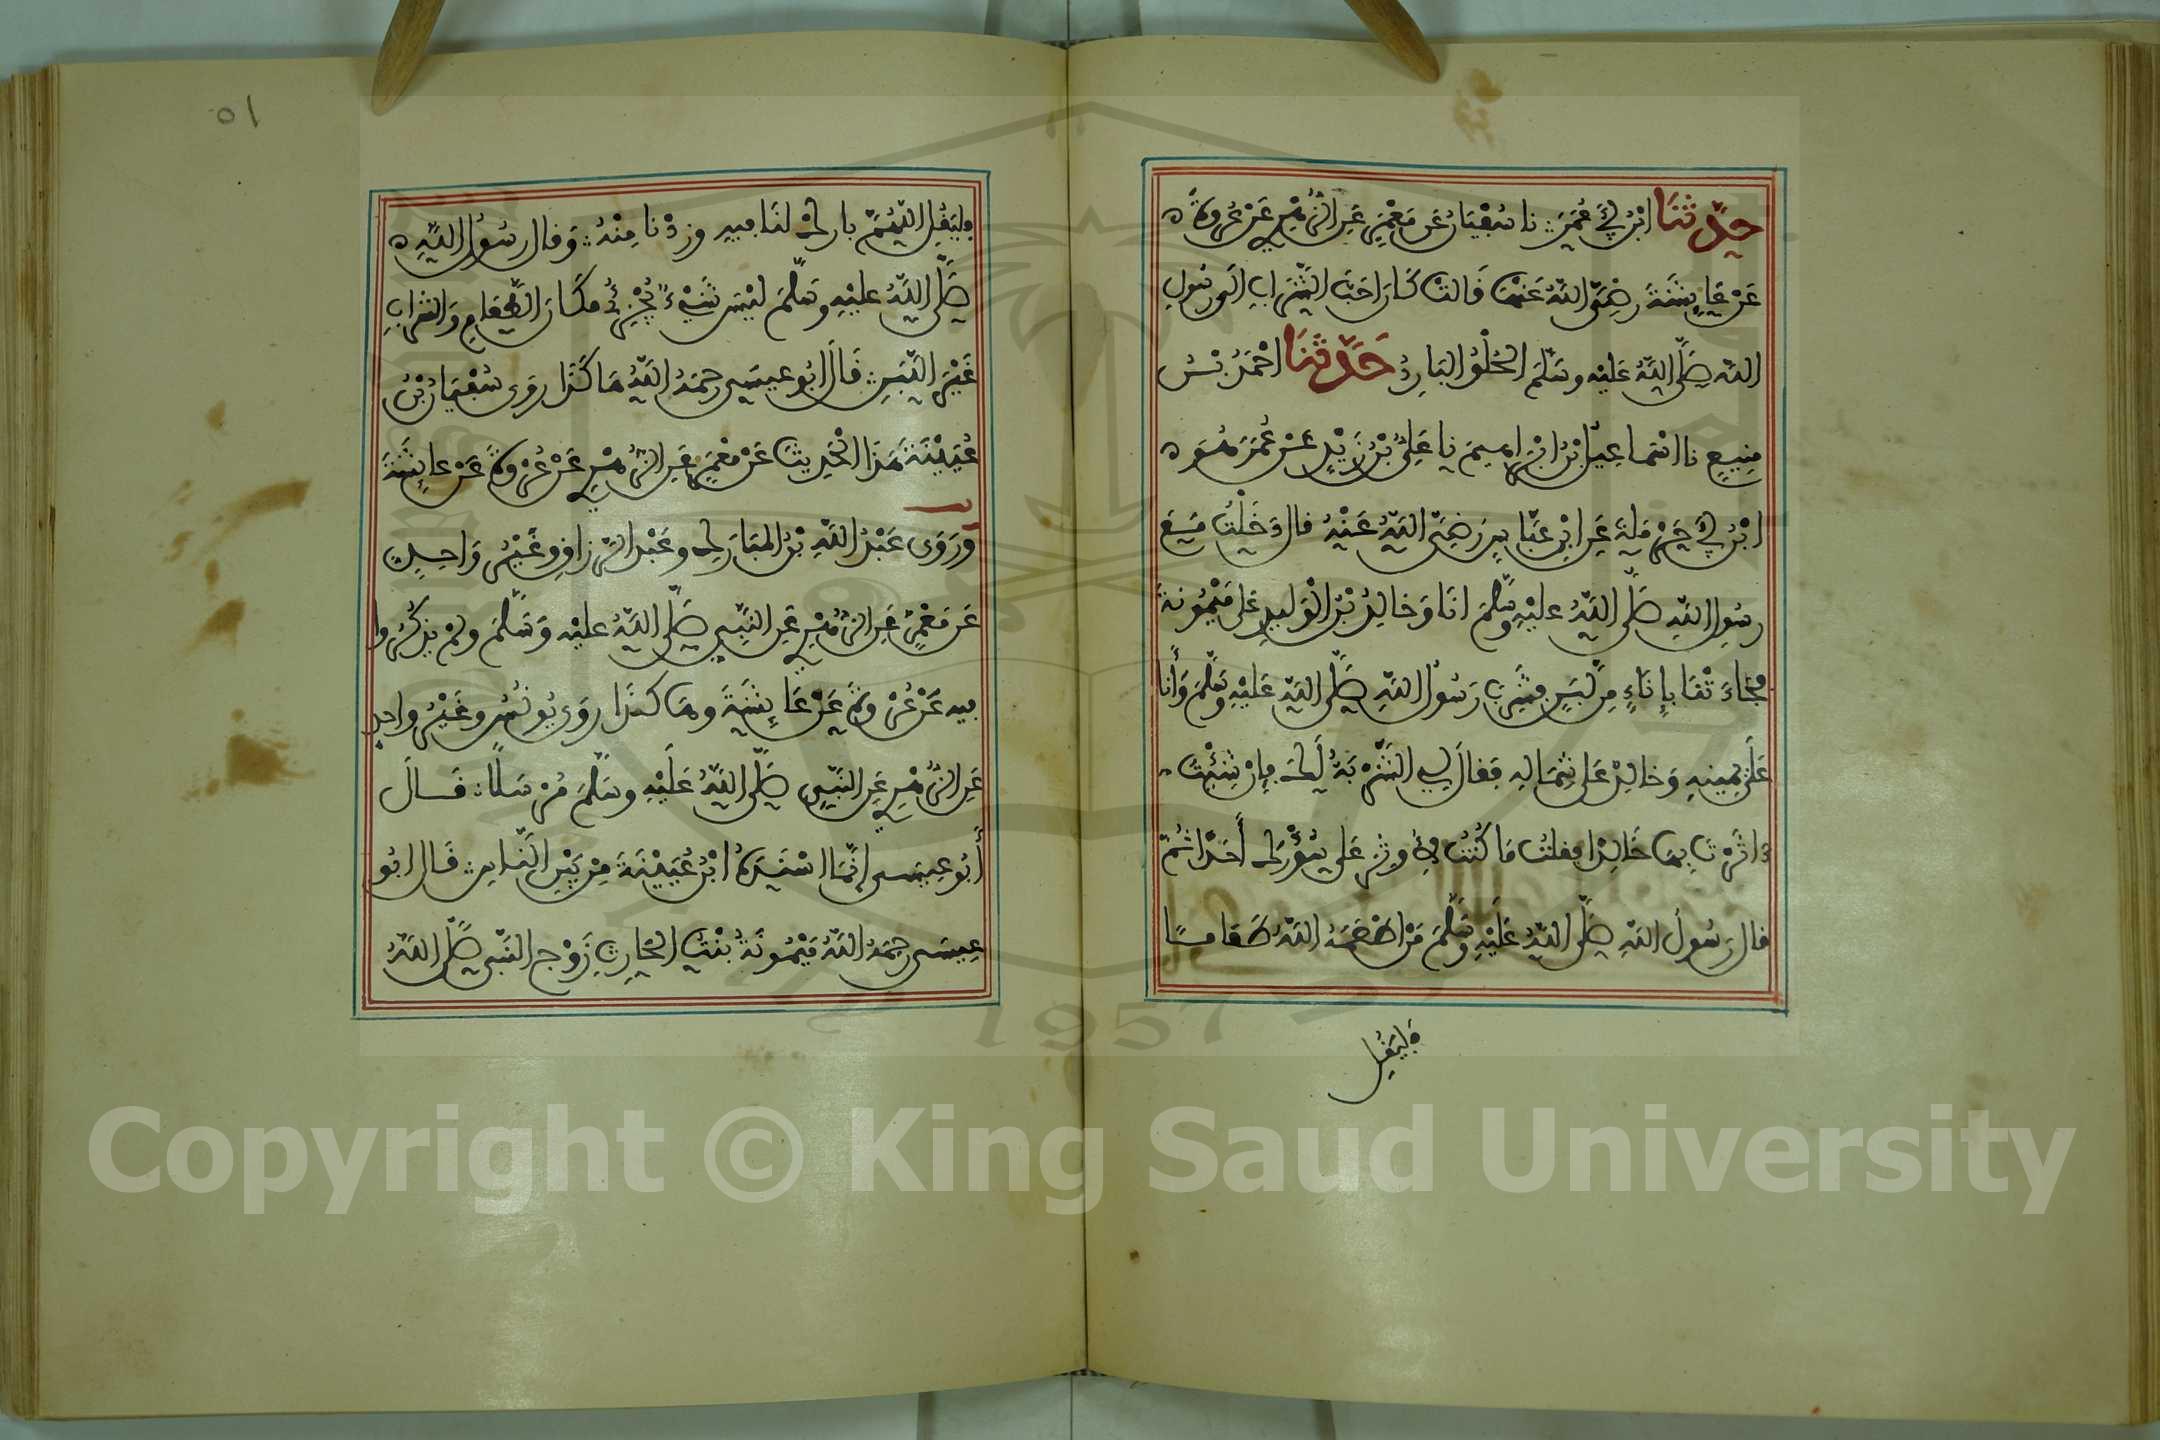 حَدَّثَنَا ابْنُ أَبِي عُمَرَ نا سُفْيَانُ عَن مَعْمَرٍ عَنِ الزُّهْرِيِّ عَنْ عُرْوَةَ
عَنْ عَائِشَةَ رَضِيَ اللَّهُ عَنْهَا قَالَتْ كَانَ أَحَبَّ الشَّرَابِ إِلَى رَسُولِ
اللَّهِ صَلَّى اللَّهُ عَلَيْهِ وسَلَّمَ الحُلْوُ البَارِدُ حَدَّثَنَا أَحْمَدُ بْنُ
مَنِيعٍ نا اسْمَاعِيلُ ابْنُ إبْرَاهِيمَ نا عَلِيُّ بْنُ زَيْدٍ عَنْ عُمَرَ هُوَ
ابْنُ أَبِي حَرْمَلَةَ عَنِ ابْنِ عَبَّاسٍ رَضِيَ اللَّهُ عَنْهُ قال دَخَلْتُ مَعَ
رَسُولِ اللَّهِ صَلَّى اللَّهُ عليْهِ وسَلَّمَ انَا وَخَالِدُ بْنُ الْوَلِيدِ عَلَى مَيْمُونَةَ
فَجَاءَتْنَا بِإِنَاءٍ مِن لَّبَنٍ فَشَرِبَ رَسُولُ اللَّهِ صَلَّى اللَّهُ عَلَيْهِ وسَلَّمَ وَأَنَا
عَلَى يَمِينِهِ وَخَالِدٌ عَلَى شِمَالِهِ فَقَالَ لِي الشَّرْبَةُ لَكَ فإِنْ شِئْتَ
ءاثَرْتَ بِهَا خَالِدًا فقلتُ مَا كُنْتُ لِأُوثِرَ عَلَى سُؤْرِكَ أَحَدًا ثُمَّ
قال رَسُولُ اللَّهِ صَلَّى اللَّهُ عَلَيْهِ وسَلَّمَ مَنْ اطْعَمَهُ اللَّهُ طَعَامًا
فَلْيَقُلِ
٥١
فليَقُلِ اللَّهُمَّ بارك لنَا فِيهِ وزِدْنا مِنْهُ وَقال رسُولُ اللَّهِ
صَلَّى اللَّهُ عليْهِ وسَلَّمَ ليْسَ شَيْءٌ يُجْزِئُ مَكَانَ الطَّعَامِ وَالشَّرَابِ
غَيْرَ اللَّبَنِ قَالَ ابُو عِيسَى رحمَهُ اللَّهُ هَاكَذَا رَوَى سُفْيَانُ بْنُ
عُيَيْنَةَ هَذَا الْحَدِيثَ عَنْ مَعْمَرٍ عَنِ الزُّهْرِيِّ عَنْ عُرْوَةَ عَنْ عائِشَةَ
وَرَوَى عَبْدُ اللَّهِ بْنُ المُبَارَكِ وعَبْدُ الرَّزَّاقِ وغَيْرُ وَاحِدٍ
عَن مَعْمَرٍ عَنِ الزُّهْرِيِّ عَنِ النَّبِيِّ صَلَّى اللَّهُ عليْهِ وَسَلَّمَ ولَمْ يَذْكُرُوا
فيه عَنْ عُرْوَةَ عَنْ عَائِشَةَ وهَاكَذَا رَوَى يُونُسُ وغَيْرُ واحِدٍ
عَنِ الزُّهْرِيِّ عَنِ النَّبِيِّ صَلَّى اللَّهُ عَلَيْهِ وسَلَّمَ مُرْسَلًا قَالَ
أَبُو عِيسَى إِنَّمَا اسْنَدَهُ ابْنُ عُيَيْنَةَ مِنْ بَيْنِ النَّاسِ قَالَ ابُو
عِيسَى رحمَهُ اللَّهُ مَيْمُونَةُ بِنْتُ الحَارِثِ زَوْجُ النَّبِي صَلَّى اللَّهُ
Copyright © King Saud University
1957